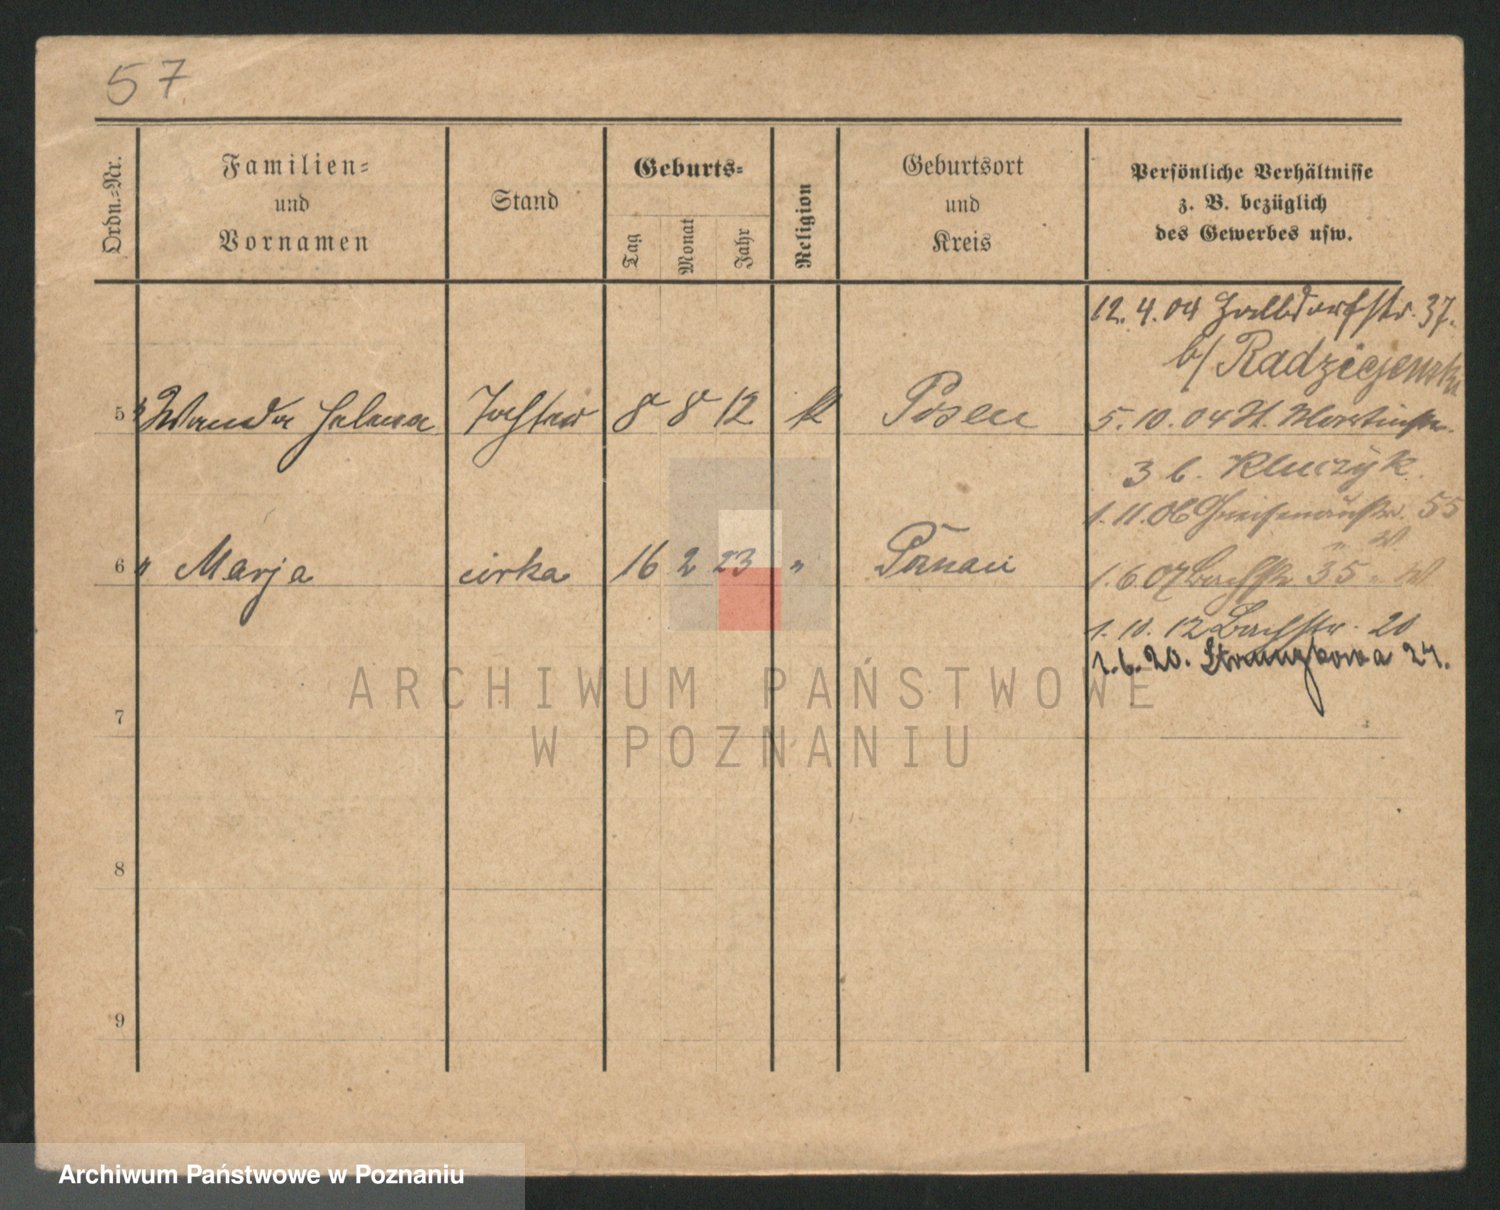 57
Ordn.=Nr.
Familien=
und
Vornamen
Stand
Geburts=
Tag
Monat
Jahr
Religion
Geburtsort
und
Kreis
Persönliche Verhältnisse
z. B. bezüglich
des Gewerbes usw.
12. 4. 04 37.
b/ Radziejewski
5 " Wanda Helena Tochter 8 8 12 k Posen
5. 10. 04 St. Martinstr.
3 b. Kluczyk.
1. 11. 06 Gneisenaustr. 55
6 " Marja córka 16 2 23 "
1. 6. 07 Bachstr 35
1. 10. 12 Bachstr. 20
1. 6. 20. Strumykowa 24.
7
8
9
ARCHIWUM PAŃSTWOWE
W POZNANIU
Archiwum Państwowe w Poznaniu